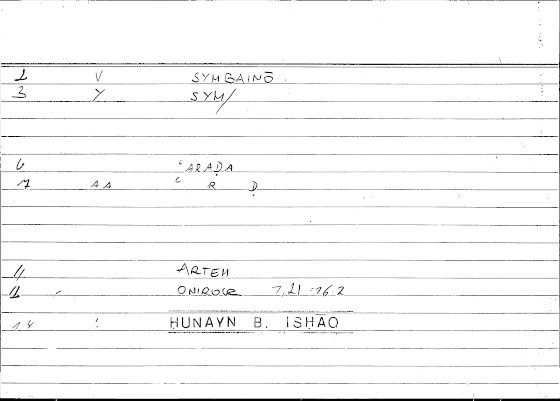 2 V SYMBAINŌ
3 Y SYM/
6 ʿARAḌA
7 AA ʿ R Ḍ
11 ARTEM
ONIROCR
14 : HUNAYN B. ISHAQ